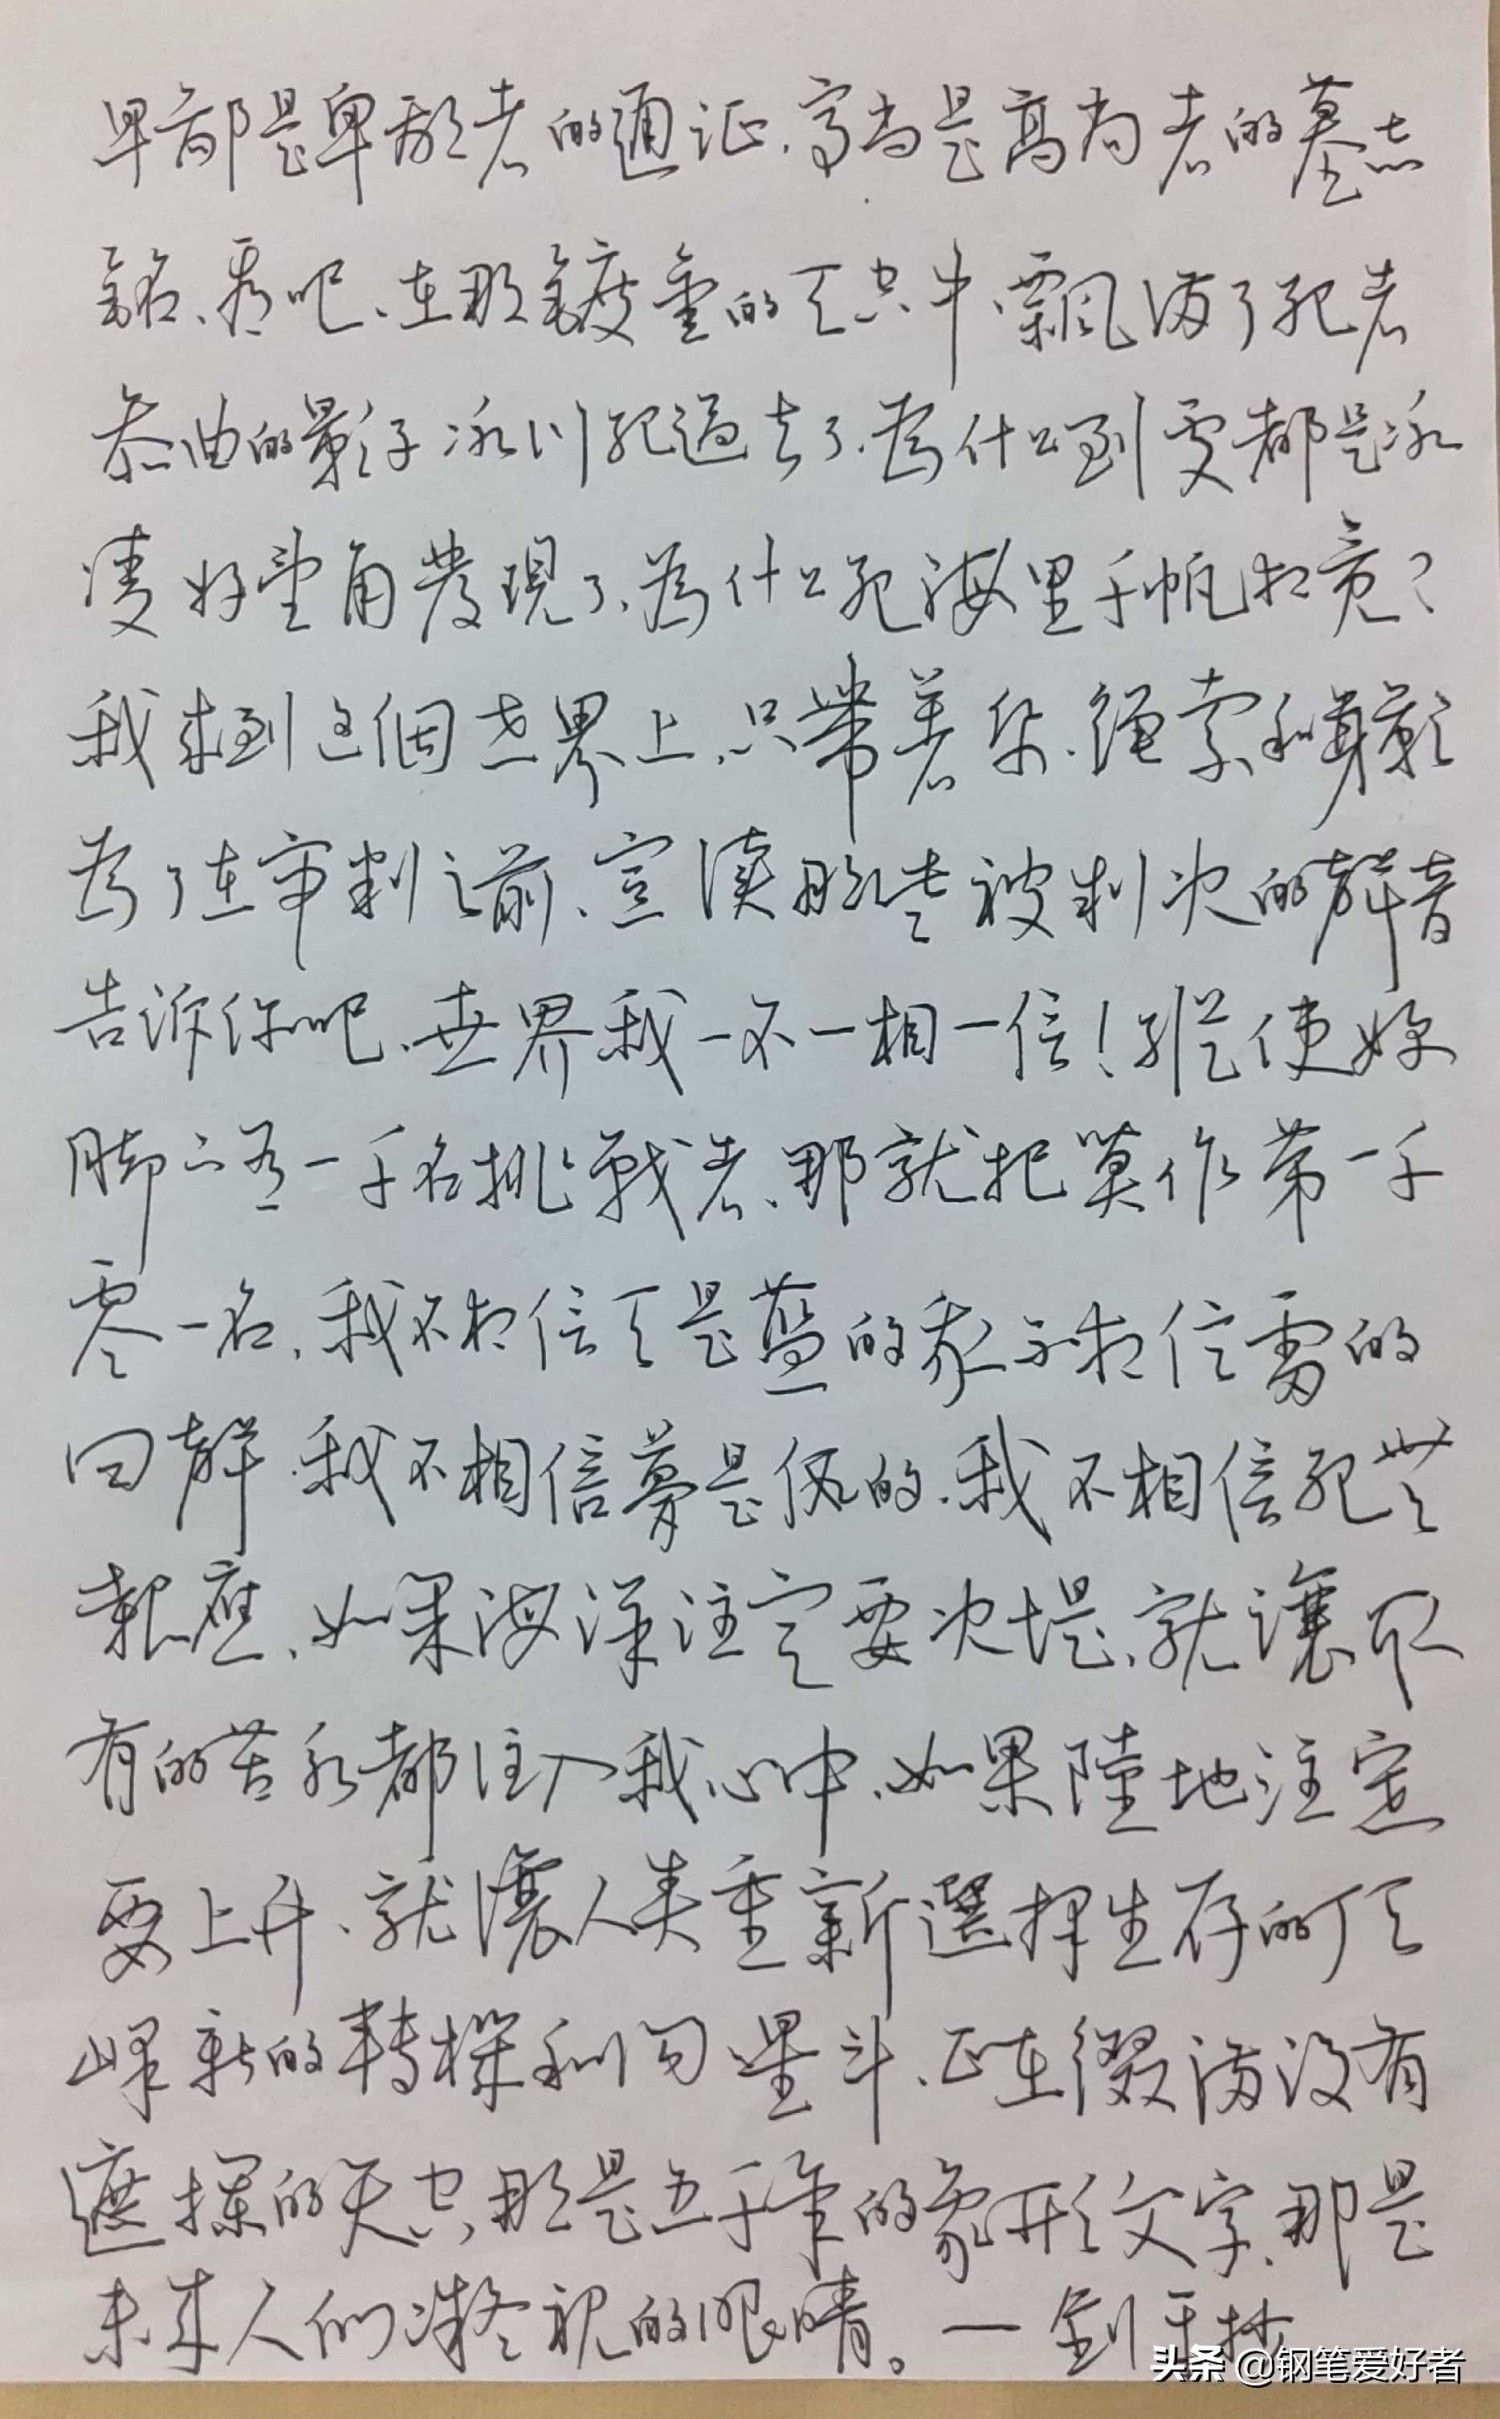 卑鄙是卑鄙者的通证、高尚是高尚者的墓志
銘、看吧、在那鍍金的天空中、飄满了死者
弯曲的影子冰川纪過去了、為什么到處都是冰
凌好望角發現了、為什么死海里千帆相竞？
我来到这個世界上、只带着纸、繩索和身影
為了在审判之前、宣读那些被判决的聲音
告诉你吧、世界我一不一相一信！縱使妳
脚下有一千名挑戰者、那就把我作第一千
零一名、我不相信天是藍的我不相信雷的
回聲、我不相信夢是假的、我不相信死無
報應、如果海洋注定要决堤、就讓所
有的苦水都注入我心中、如果陸地注定
要上升、就讓人类重新選择生存的顶
峰新的轉機和闪星斗、正在缀满没有
遮攔的天空、那是五千年的象形文字、那是
未来人们凝视的眼睛。一劉
头条 @钢笔爱好者